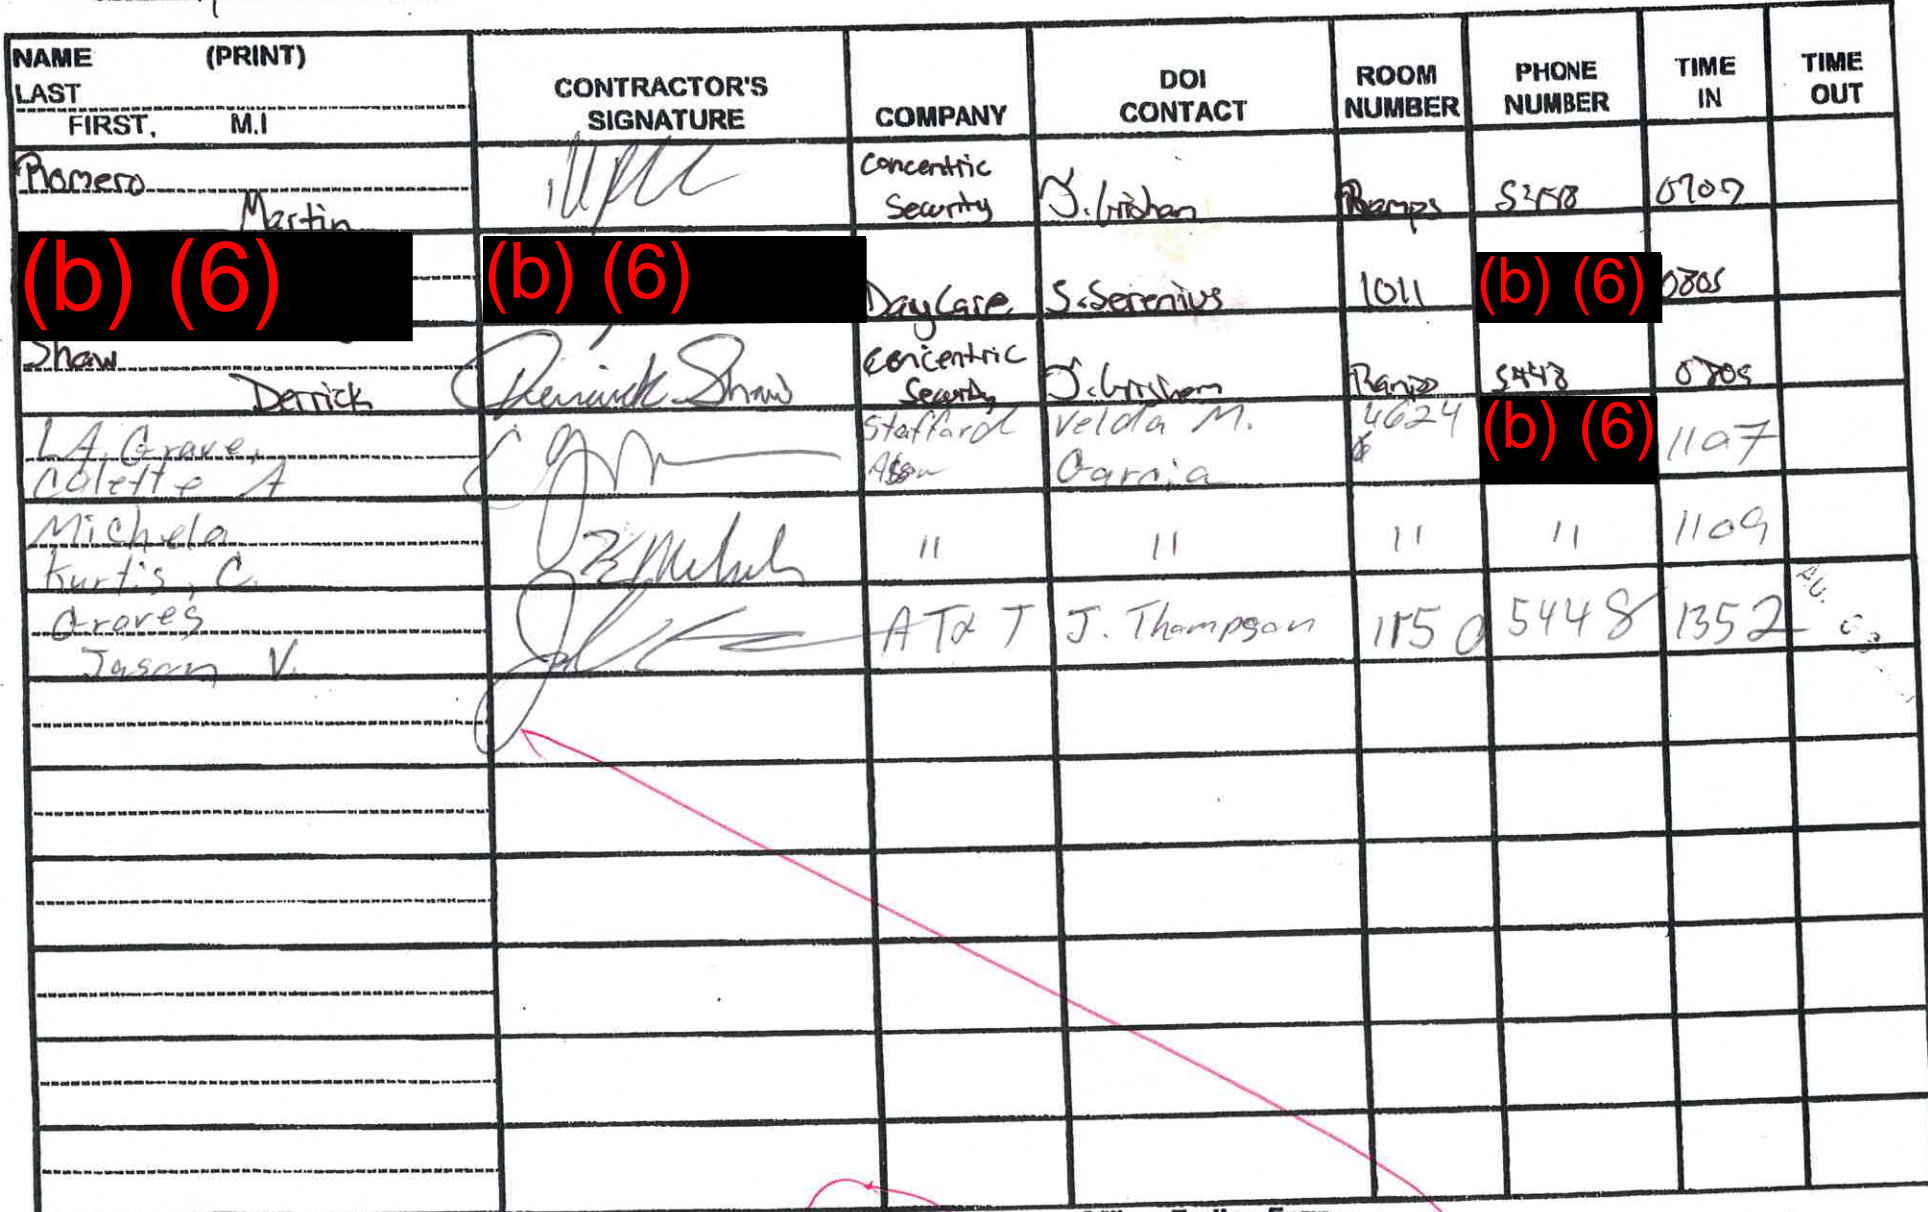 NAME (PRINT)
LAST
FIRST, M.I
CONTRACTOR'S
SIGNATURE
COMPANY
DOI
CONTACT
ROOM
NUMBER
PHONE
NUMBER
TIME
IN
TIME
OUT
Romero
Martin
Concentric
Security
Ramps
0707
(b) (6)
(b) (6)
DayCare
S. Serenius
1011
(b) (6)
0805
Shaw
Derrick
Derrick Shaw
Concentric
Security
5448
0705
LA Grave,
Colette A
Velda M.
Garcia
4624
(b) (6)
1107
Michela
Kurtis, C.
"
"
"
"
1109
Graves
Jason V.
AT&T
J. Thompson
1150
5448
1352